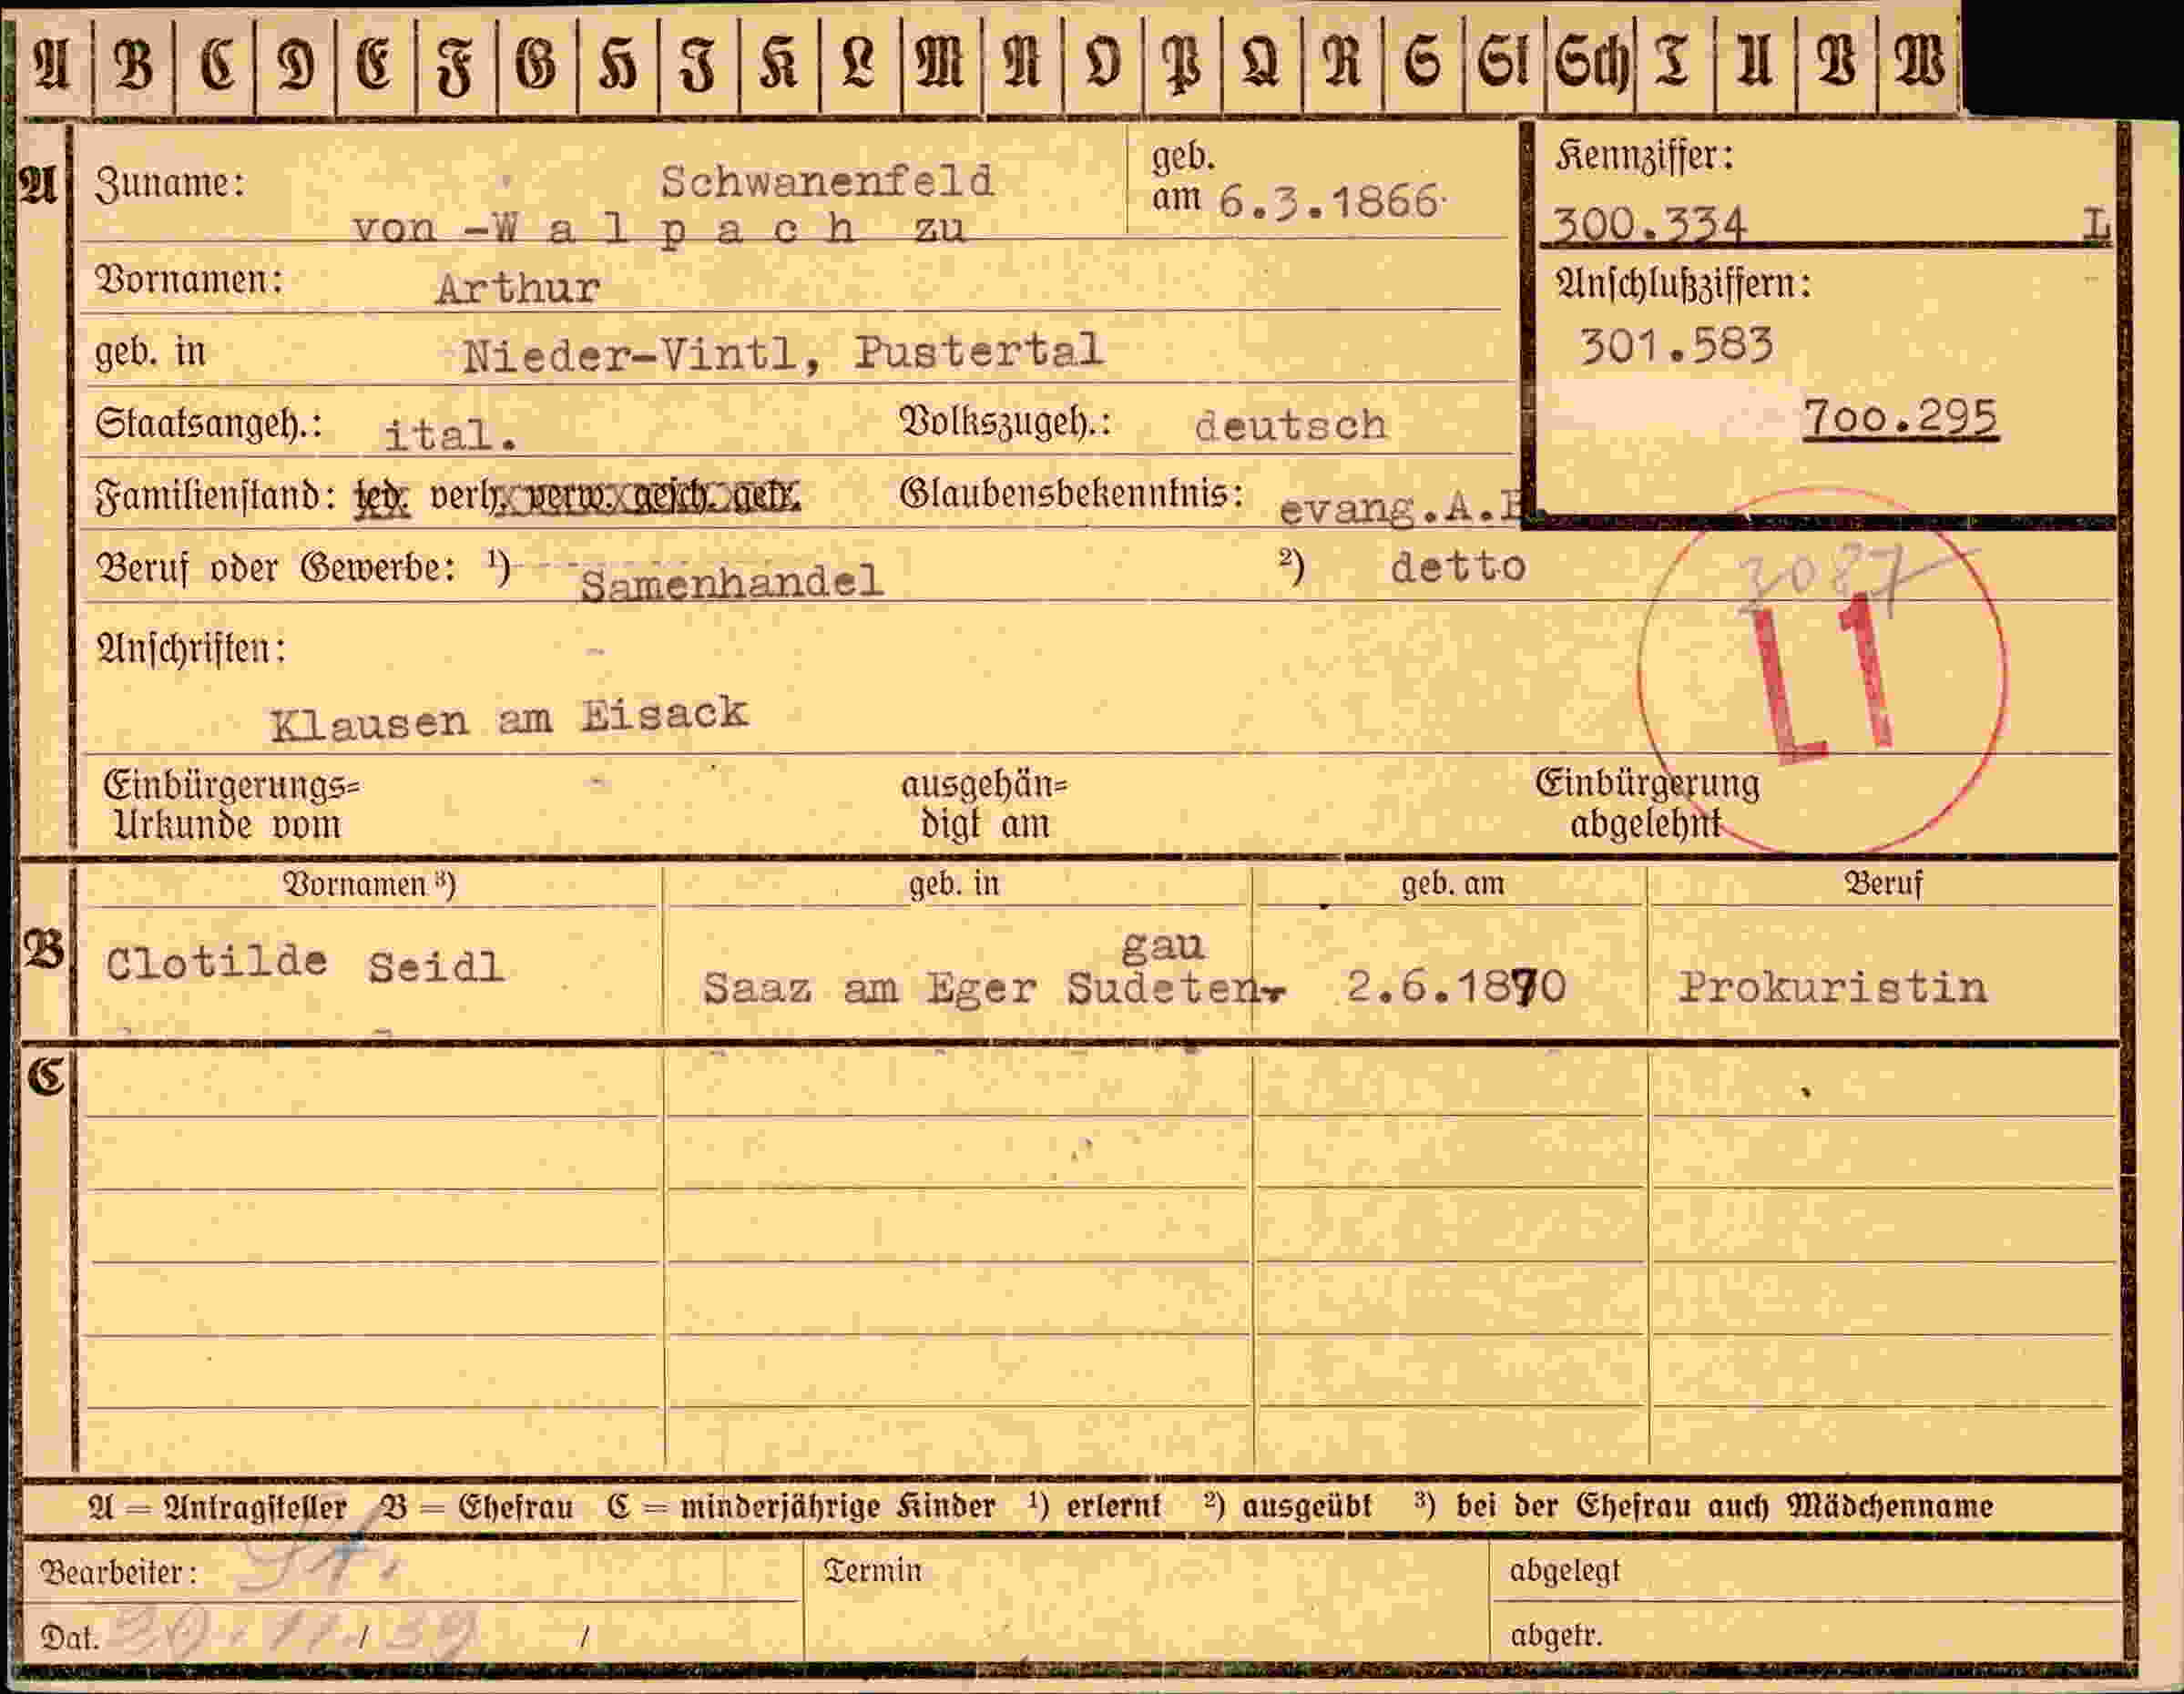 A B C D E F G H I K L M N O P Q R S St Sch T U V W
A Zuname: Schwanenfeld
von -W a l p a c h zu
geb.
am 6.3.1866.
Kennziffer:
300.334 L
Vornamen: Arthur
Anschlußziffern:
301.583
700.295
geb. in Nieder-Vintl, Pustertal
Staatsangeh.: ital. Volkszugeh.: deutsch
Familienstand: led. verh. verw. gesch. getr. Glaubensbekenntnis: evang.A.B.
Beruf oder Gewerbe: ¹) Samenhandel ²) detto
L1
Anschriften:
Klausen am Eisack
Einbürgerungs=
Urkunde vom
ausgehän=
digt am
Einbürgerung
abgelehnt
Vornamen ³) geb. in geb. am Beruf
B Clotilde Seidl
gau
Saaz am Eger Sudeten- 2.6.1870 Prokuristin
C
A = Antragsteller B = Ehefrau C = minderjährige Kinder ¹) erlernt ²) ausgeübt ³) bei der Ehefrau auch Mädchenname
Bearbeiter: Termin abgelegt
Dat. 30.11./39 / abgetr.